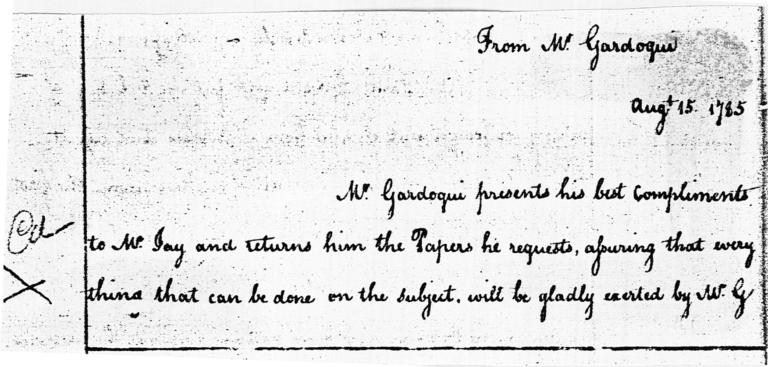 From Mr. Gardoqui
Augt. 15. 1785
Mr. Gardoqui presents his best Compliments
Cd
to Mr. Jay and returns him the Papers he requests, aſsuring that every
X
thing that can be done on the subject. will be gladly exerted by Mr. G